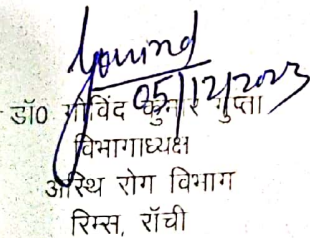 Govind
05/12/2023
डॉ0 गोविंद कुमार गुप्ता
विभागाध्यक्ष
अस्थि रोग विभाग
रिम्स, राँची